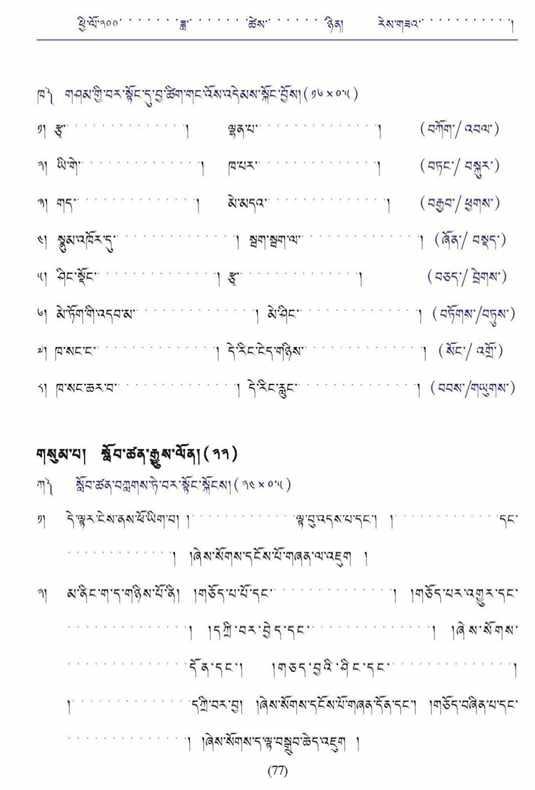 ཕྱི་ལོ་༢༠༠ ་ ་ ་ ་ ་ ་ ་ ཟླ་ ་ ་ ་ ་ ་ ་ ཚེས་ ་ ་ ་ ་ ་ ་ ཉིན། རེས་གཟའ་ ་ ་ ་ ་ ་ ་ ་ ་ ་ །
ཁ༽ གཤམ་གྱི་བར་སྟོང་དུ་བྱ་ཚིག་གང་འོས་འདེམས་སྐོང་བྱོས། (༡༦ × ༠་༥)
༡། རྩྭ་ ་ ་ ་ ་ ་ ་ ་ ་ ་ ་ ་ ། ལྷན་པ་ ་ ་ ་ ་ ་ ་ ་ ་ ་ ་ ་ ། (བཀོག་/ འབལ་)
༢། ཡི་གེ་ ་ ་ ་ ་ ་ ་ ་ ་ ་ ་ ་ ། ཁ་པར་ ་ ་ ་ ་ ་ ་ ་ ་ ་ ་ ་ ། (བཏང་/ བསྐུར་)
༣། གད་ ་ ་ ་ ་ ་ ་ ་ ་ ་ ་ ་ ། མེ་མདའ་ ་ ་ ་ ་ ་ ་ ་ ་ ་ ་ ་ ། (བརྒྱབ་/ ཕྱགས་)
༤། སྣུམ་འཁོར་དུ་ ་ ་ ་ ་ ་ ་ ་ ་ ་ ་ ་ ། སྦག་སྦག་ལ་ ་ ་ ་ ་ ་ ་ ་ ་ ་ ་ ་ ། (ཞོན་/ བསྡད་)
༥། ཤིང་སྡོང་ ་ ་ ་ ་ ་ ་ ་ ་ ་ ་ ་ ། རྩྭ་ ་ ་ ་ ་ ་ ་ ་ ་ ་ ་ ་ ། (བཅད་/ བྲེགས་)
༦། མེ་ཏོག་གི་འདབ་མ་ ་ ་ ་ ་ ་ ་ ་ ་ ་ ་ ་ ། མེ་ཤིང་ ་ ་ ་ ་ ་ ་ ་ ་ ་ ་ ་ ། (བཏོགས་/བཏུས་)
༧། ཁ་སང་ང་ ་ ་ ་ ་ ་ ་ ་ ་ ་ ་ ་ ། དེ་རིང་ངེད་གཉིས་ ་ ་ ་ ་ ་ ་ ་ ་ ་ ་ ་ ། (སོང་/ འགྲོ་)
༨། ཁ་སང་ཆར་བ་ ་ ་ ་ ་ ་ ་ ་ ་ ་ ་ ་ ། དེ་རིང་རླུང་ ་ ་ ་ ་ ་ ་ ་ ་ ་ ་ ་ ། (བབས་/གཡུགས་)
གསུམ་པ། སློབ་ཚན་རྒྱུས་ལོན། (༢༢)
ཀ༽ སློབ་ཚན་བཀླགས་ཏེ་བར་སྟོང་སྐོངས། (༢༤ × ༠་༥)
༡། དེ་ལྟར་ངེས་ནས་ཕོ་ཡིག་བ། ། ་ ་ ་ ་ ་ ་ ་ ་ ་ ་ ་ ་ ལྟ་བུ་འདས་པ་དང་། ། ་ ་ ་ ་ ་ ་ ་ ་ ་ ་ ་ ་ དང་
་ ་ ་ ་ ་ ་ ་ ་ ་ ་ ་ ་ ། །ཞེས་སོགས་དངོས་པོ་གཞན་ལ་འཇུག །
༢། མ་ནིང་ག་ད་གཉིས་པོ་ནི། །གཅོད་པ་པོ་དང་ ་ ་ ་ ་ ་ ་ ་ ་ ་ ་ ་ ། །གཅོད་པར་འགྱུར་དང་
་ ་ ་ ་ ་ ་ ་ ་ ་ ་ ་ ་ ། །དཀྲི་བར་བྱེད་དང་ ་ ་ ་ ་ ་ ་ ་ ་ ་ ་ ་ ། །ཞེས་སོགས་
་ ་ ་ ་ ་ ་ ་ ་ ་ ་ ་ ་ དོན་དང་། །གཅད་བྱའི་ཤིང་དང་ ་ ་ ་ ་ ་ ་ ་ ་ ་ ་ ་ །
། ་ ་ ་ ་ ་ ་ ་ ་ ་ ་ ་ དཀྲི་བར་བྱ། །ཞེས་སོགས་དངོས་པོ་གཞན་དོན་དང་། །གཅོད་བཞིན་པ་དང་
་ ་ ་ ་ ་ ་ ་ ་ ་ ་ ་ ་ ། །ཞེས་སོགས་ད་ལྟ་བསྒྲུབ་ཆེད་འཇུག །
(77)